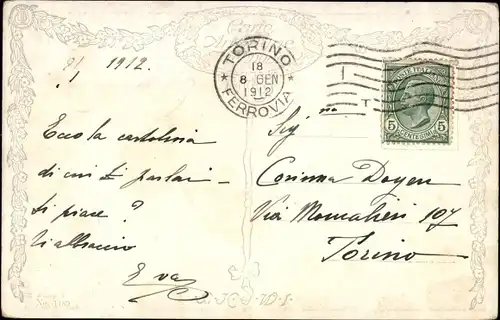 TORINO
18
8 GEN
1912
FERROVIA
POSTE ITALIANE
5 5
CENTESIMI
1912.
Ecco la cartolina
di cui ti parlai -
ti piace?
Ti abbraccio
Eva
Sig.na
Corinna Doyen
Via Moncalieri 107
Torino